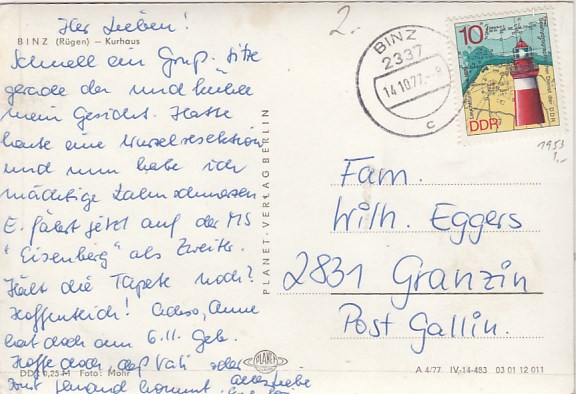 Ihr Lieben!
BINZ (Rügen) — Kurhaus
Schnell ein Gruß. Sitze
gerade da und kühle
mein Gesicht. Hatte
heute eine Wurzelresektion
und nun habe ich
mächtige Zahnschmerzen
E. fährt jetzt auf der MS
"Eisenberg" als Zweiter.
Hält die Tapete noch?
Hoffentlich! Anne
hat doch am 6.11. Geb.
Hoffe doch, daß Vati oder
jemand kommt. alles Liebe
DDR 0,25 M Foto: Mohr
PLANET-VERLAG BERLIN
PLANET
2.
BINZ
2337
14.10.77.-8
c
10
DDR
1953
1,-
Fam.
Wilh. Eggers
2831 Granzin
Post Gallin.
A 4/77 IV-14-483 03 01 12 011